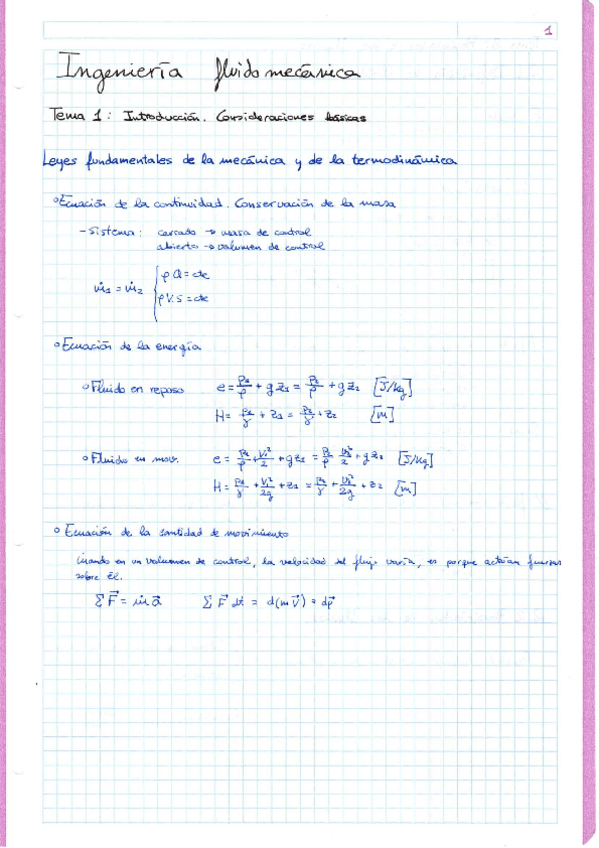 1
Ingeniería fluidomecánica
Tema 1: Introducción. Consideraciones básicas
Leyes fundamentales de la mecánica y de la termodinámica
Ecuación de la continuidad. Conservación de la masa
- Sistema: cerrado → masa de control
abierto → volumen de control
ṁ₁ = ṁ₂ { ρQ = cte
ρV.S = cte
Ecuación de la energía
Fluido en reposo e = P₁/ρ + gz₁ = P₂/ρ + gz₂ [J/kg]
H = P₁/γ + z₁ = P₂/γ + z₂ [m]
Fluido en mov. e = P₁/ρ + V₁²/2 + gz₁ = P₂/ρ V₂²/2 + gz₂ [J/kg]
H = P₁/γ + V₁²/2g + z₁ = P₂/γ + V₂²/2g + z₂ [m]
Ecuación de la cantidad de movimiento
Cuando en un volumen de control, la velocidad del flujo varía, es porque actúan fuerzas
sobre él.
Σ F⃗ = ṁ a⃗ Σ F⃗ dt = d(m V⃗) = dp⃗